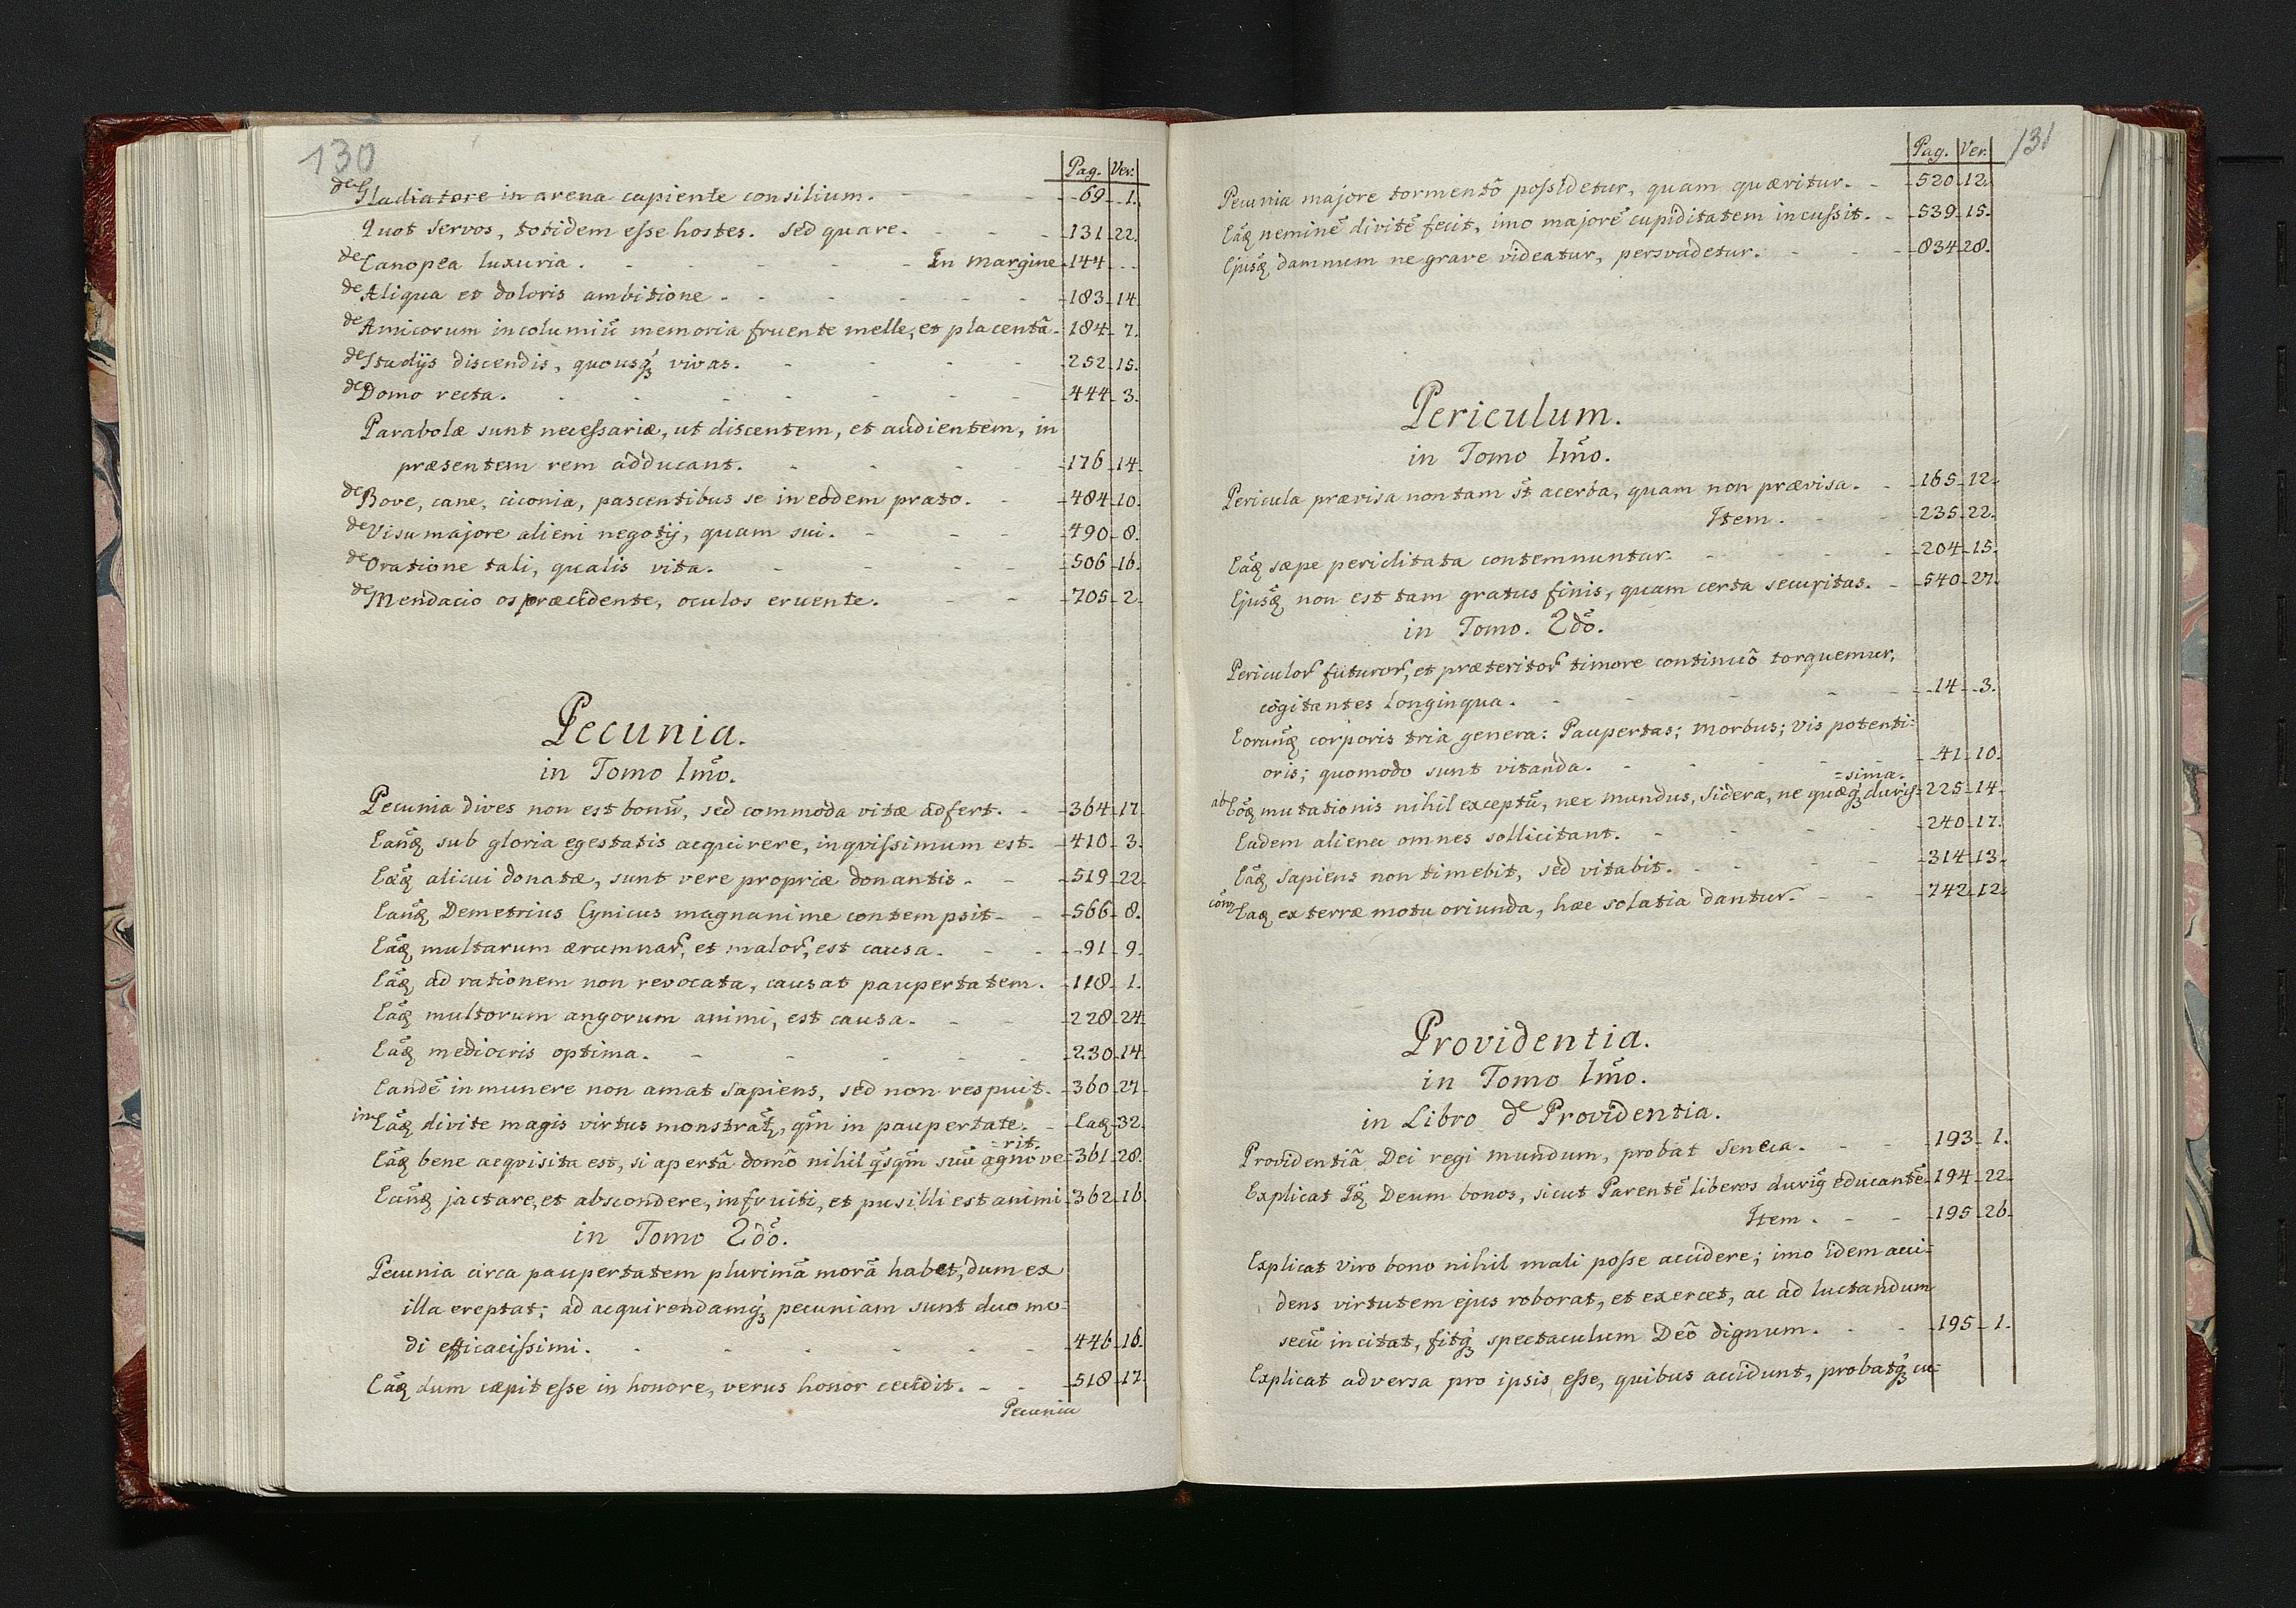 130
Pag. Ver.
de Gladiatore in arena capiente consilium. - - - 69 - 1.
Quot servos, totidem esse hostes. Sed quare. - - - 131 - 22.
de Canopea luxuria. - - - In margine - 144 - - -
de Aliqua et doloris ambitione - - - 183 - 14.
de Amicorum incolumiū memoria fruente melle, et placentâ - 184 - 7.
de Studijs discendis, quousq́ꝫ vivas. - - - 252 - 15.
de Domo recta. - - - 444 - 3.
Parabolæ sunt necessariæ, ut discentem, et audientem, in
præsentem rem adducant. - - - 176 - 14.
de Bove, cane, ciconia, pascentibus se in eodem prato. - 484 - 10.
de Visu majore alieni negotij, quam sui. - - - 490 - 8.
de Oratione tali, qualis vita. - - - 506 - 16.
de Mendacio os præcidente, oculos eruente. - - 705 - 2.
Pecunia.
in Tomo 1mō.
Pecunia dives non est bonū, sed commoda vitæ adfert. - 364 - 17.
Eañq sub gloria egestatis acquirere, inqvissimum est. - 410 - 3.
Eæq̃ alicui donatæ, sunt vere propriæ donantis. - - 519 - 22.
Eañq Demetrius Cynicus magnanime contempsit - - 566 - 8.
Eãq multarum ærumnar̃, et malor̃, est causa. - - 91 - 9.
Eãq ad rationem non revocata, causat paupertatem. - 118 - 1.
Eãq multorum angorum animi, est causa. - - 228 - 24.
Eãq mediocris optima. - - - 230 - 14.
Eandē in munere non amat sapiens, sed non respuit. - 360 - 27.
in Eãq divite magis virtus monstrat̃, qm̃ in paupertate. - Eaq - 32.
= rit.
Eãq bene acqvisita est, si apertâ domô nihil qsqm̃ suū agnove= 361 - 28.
Eañq jactare, et abscondere, infruiti, et pusilli est animi - 362 - 16.
in Tomo 2dō.
Pecunia circa paupertatem plurimā morā habet, dum ex
illa ereptat; ad acquirendamq́ꝫ pecuniam sunt duo mo=
di efficacissimi. - - - 446 - 16.
Eãq dum cæpit esse in honore, verus honor cecidit. - - 518 - 17.
Pecunia
131
Pag. Ver.
Pecunia majore tormentô possidetur, quam quæritur. - - 520 - 12.
Eãq neminē divitē fecit, imo majorē cupiditatem incussit. - 539 - 15.
Ejusq̃ damnum ne grave videatur, persvadetur. - - - 834 - 28.
Periculum.
in Tomo 1mō.
Pericula prævisa non tam st̃ acerba, quam non prævisa. - 165 - 12.
Item. - - 235 - 22.
Eãq sæpe periclitata contemnuntur. - - - 204 - 15.
Ejusq̃ non est tam gratus finis, quam certa securitas. - 540 - 27.
in Tomo. 2dō.
Periculor̃ futuror̃, et præteritor̃ timore continuô torquemur,
cogitantes longinqua. - - - 14 - 3.
Eorunq̃ corporis tria genera: Paupertas; Morbus; Vis potenti=
oris; quomodo sunt vitanda. - - - 41 - 10.
= sima.
ab Eõq mutationis nihil exceptū, nec mundus, sidera, neq́ꝫ duris= 225 - 14.
Eadem aliena omnes sollicitant. - - - 240 - 17.
Eãq sapiens non timebit, sed vitabit. - - - 314 - 13.
Eaq ex terræ motu oriunda, hæc solatia dantur. - - 742 - 12.
Providentia.
in Tomo 1mō.
in Libro de Providentia.
Providentiâ Dei regi mundum, probat Seneca. - - 193 - 1.
Explicat Iq̃ Deum bonos, sicut Parentē liberos duriq̃ educantē - 194 - 22.
Item. - - 195 - 26.
Explicat viro bono nihil mali posse accidere; imo idem acci=
dens virtutem ejus roborat, et exercet, ac ad luctandum
secū incitat, fitq́ꝫ spectaculum Deô dignum. - - 195 - 1.
Explicat adversa pro ipsis esse, quibus accidunt, probatq́ꝫ cu=